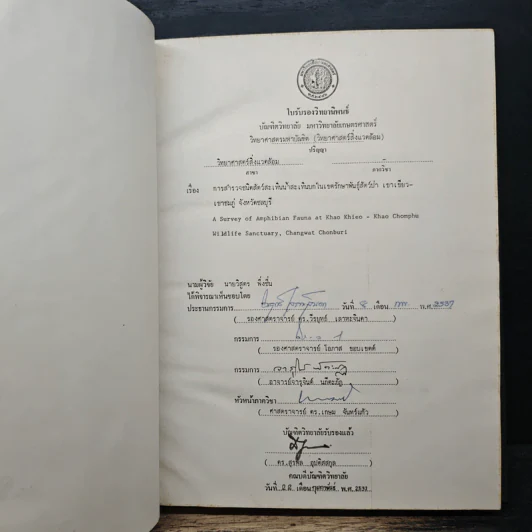 ใบรับรองวิทยานิพนธ์
บัณฑิตวิทยาลัย มหาวิทยาลัยเกษตรศาสตร์
วิทยาศาสตรมหาบัณฑิต (วิทยาศาสตร์สิ่งแวดล้อม)
ปริญญา
วิทยาศาสตร์สิ่งแวดล้อม
สาขา ภาควิชา
เรื่อง การสำรวจชนิดสัตว์สะเทินน้ำสะเทินบกในเขตรักษาพันธุ์สัตว์ป่า เขาเขียว-
เขาชมภู่ จังหวัดชลบุรี
A Survey of Amphibian Fauna at Khao Khieo - Khao Chomphu
Wildlife Sanctuary, Changwat Chonburi
นามผู้วิจัย นายวิสูตร พึ่งชื่น
ได้พิจารณาเห็นชอบโดย
ประธานกรรมการ วันที่ 8 เดือน กพ. พ.ศ.
( รองศาสตราจารย์ ดร.วีรยุทธ์ เลาหะจินดา )
กรรมการ
( รองศาสตราจารย์ โอภาส ขอบเขตต์ )
กรรมการ
( อาจารย์จารุจินต์ นภีตะภัฏ )
หัวหน้าภาควิชา
( ศาสตราจารย์ ดร.เกษม จันทร์แก้ว )
บัณฑิตวิทยาลัยรับรองแล้ว
( ดร.สุรพล อุปดิสสกุล )
คณบดีบัณฑิตวิทยาลัย
วันที่ เดือน กุมภาพันธ์ พ.ศ.